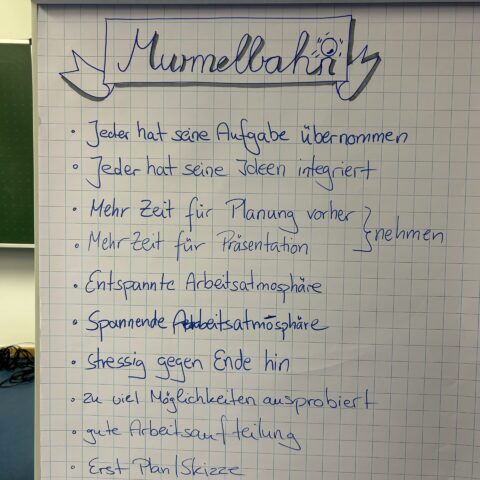 Murmelbahn
• Jeder hat seine Aufgabe übernommen
• Jeder hat seine Ideen integriert
• Mehr Zeit für Planung vorher } nehmen
• Mehr Zeit für Präsentation
• Entspannte Arbeitsatmosphäre
• Spannende Arbeitsatmosphäre
• stressig gegen Ende hin
• zu viel Möglichkeiten ausprobiert
• gute Arbeitsaufteilung
• Erst Plan/Skizze